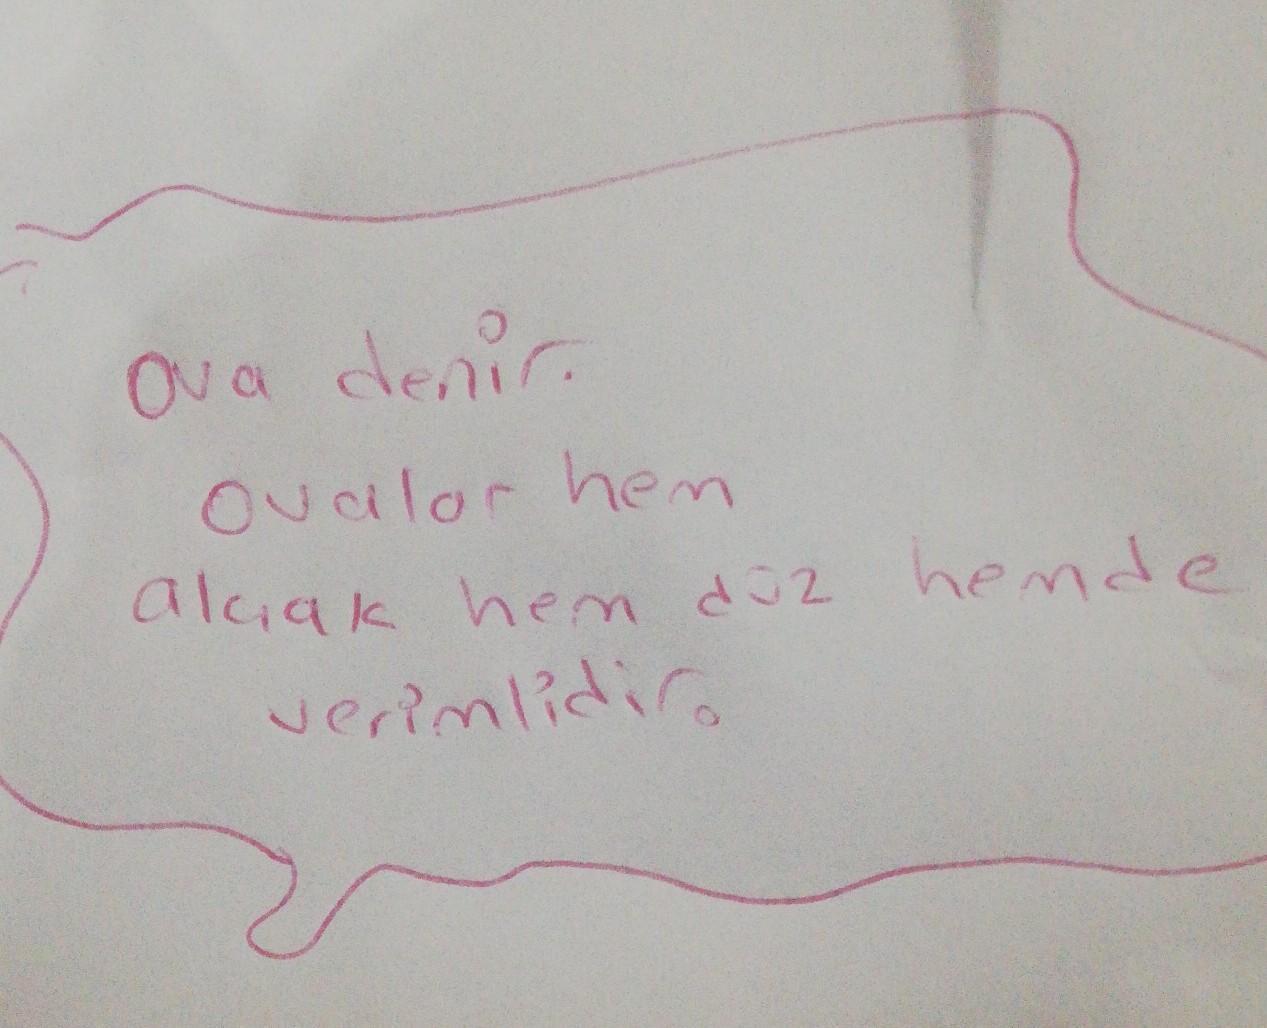 Ova denir.
Ovalar hem
alçak hem düz hemde
verimlidir.